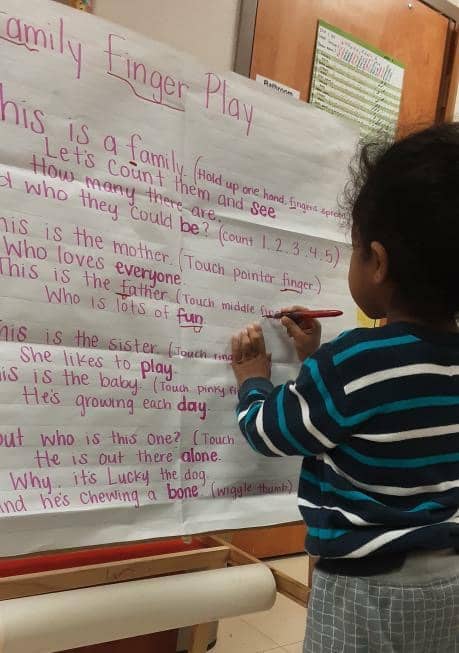 amily Finger Play
Bathroom
his is a family. (Hold up one hand, fingers spread
Let's Count them and see
How many there are.
d who they could be? (count 1.2.3.4.5)
his is the mother. (Touch pointer finger.)
Who loves everyone.
This is the father (Touch middle
Who is lots of fun
his is the sister. (Touch ring
She likes to play.
is is the baby. (Touch pinky
He's growing each day.
out who is this one? (Touch
He is out there alone.
Why, it's Lucky the dog
and he's chewing a bone. (wiggle thumb)